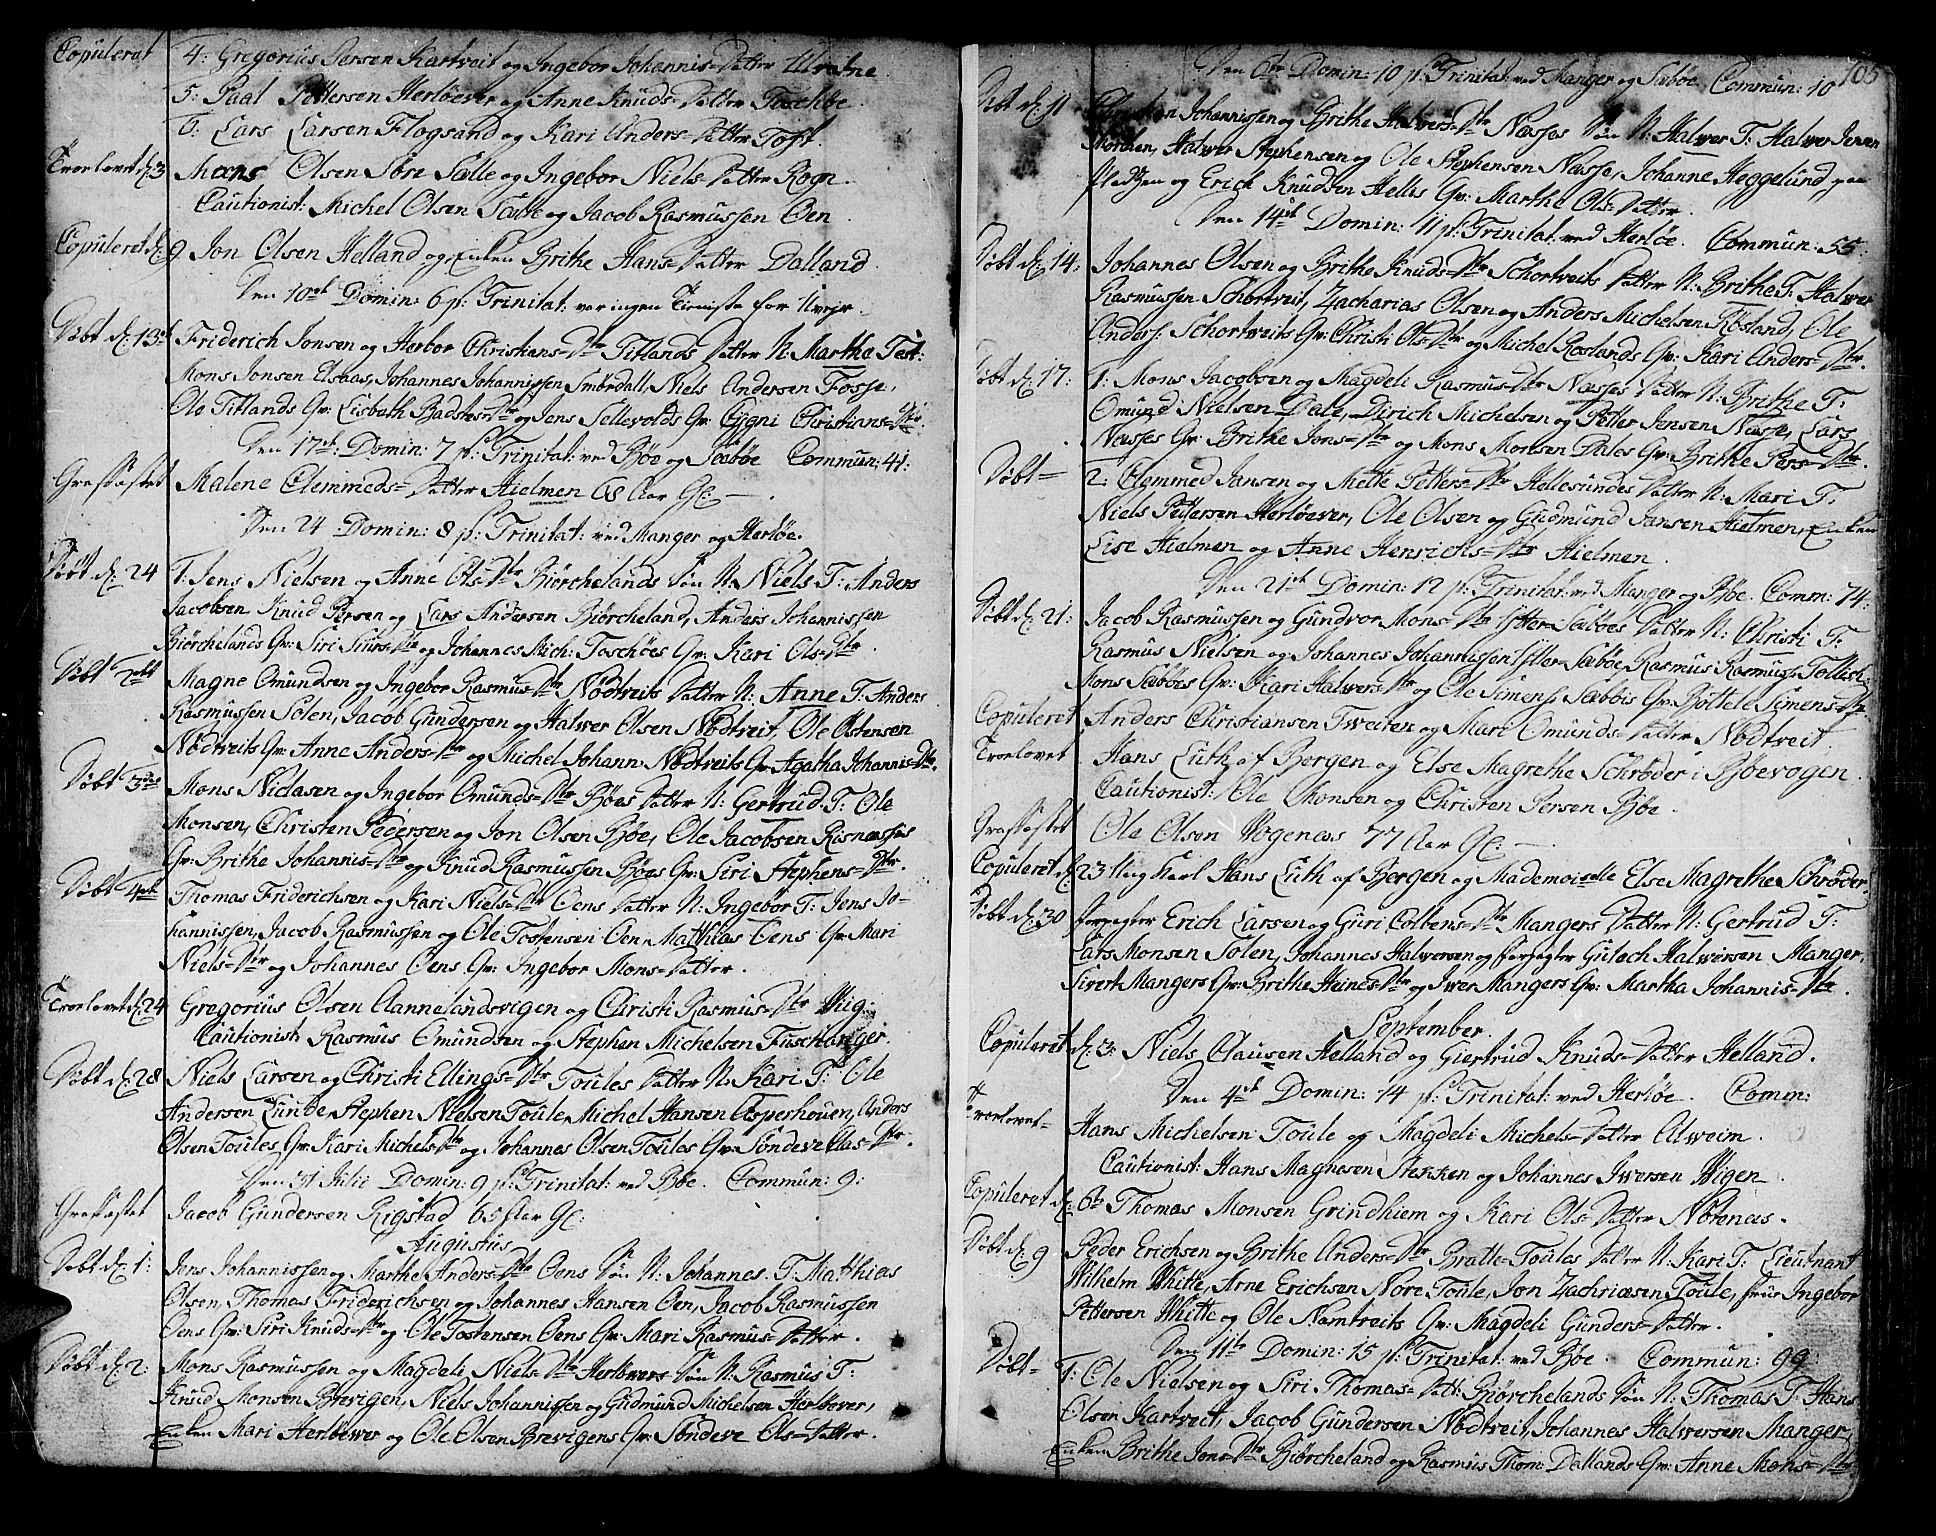 Copulerat 4: Gregorius Persen Kartveit og Ingebor Johannis-Datter Uratne
5: Paal Pettersen Herlöever og Anne Knuds-Datter Toschöe.
6: Lars Larsen Flogsand og Kari Anders-Datter Toft.
Trorlovet d: 3 Mons Olsen Söre Sælle og Ingebor Niels-Datter Rogn.
Cautionist: Michel Olsen Sælle og Jacob Rasmussen Oen.
Copuleret d: 9 Jon Olsen Helland og Enken Brithe Hans-Datter Dalland.
Den 10de Domin: 6 p: Trinitat: var ingen Tieniste for Uvejr.
Döbt d: 13de Friderich Jonsen og Herbor Christians-Dtr Titlands Datter N: Marthe Test:
Mons Jonsen Elsaas, Johannes Johannissen Smördall, Niels Andersen Fosse,
Ole Titlands Qv: Lisbeth Badsters-Dtr og Jens Sellevolds Qv: Cygni Christians-Dtr.
Den 17de: Domin: 7 p: Trinitat: ved Böe og Sæböe Commun: 41:
Græsfæstet Malene Clemmeds-Datter Hielmen 68 Aar Gl:
Den 24 Domin: 8 p: Trinitat: ved Manger og Herlöe.
Döbt d: 24 1. Jens Nielsen og Anne Ols-Dtr Biörchelands Sön N: Niels T: Anders
Jacobsen Knud Persen og Lars Andersen Biörcheland, Anders Johannissen
Biörchelands Qv: Siri Siurs-Dtr og Johannes Mich: Toschöes Qv: Kari Ols-Dtr.
Döbt 2det Magne Omundsen og Ingebor Rasmus-Dtr Nödtveits Datter N: Anne T: Anders
Rasmussen Solen, Jacob Gundersen og Halwer Olsen Nödtveit, Ole Ostensen
Nödtveits Qv: Anne Anders-Dtr og Michel Johann: Nödtveits Qv: Agatha Johannis-Dtr.
Döbt 3die Mons Niclasen og Ingebor Omunds-Dtr Böes Datter N: Gertrud T: Ole
Monsen, Christen Pedersen og Jon Olsen Böe, Ole Jacobsen Risnæsses
Qv: Brithe Johannis-Dtr og Knud Rasmussen Böes Qv: Siri Stephens-Dtr.
Döbt 4de Thomas Friderichsen og Kari Niels-Dtr Oens Datter N: Ingebor T: Jens Jo-
hannissen, Jacob Rasmussen og Ole Tostensen Oen, Mathias Oens Qv: Mari
Niels-Dtr og Johannes Oens Qv: Ingebor Mons-Datter.
Trorlovet d: 24 Gregorius Olsen Aannelandsvigen og Christi Rasmus-Dtr Wiig:
Cautionist: Rasmus Omundsen og Stephen Michelsen Fuschanger.
Döbt d: 28 Niels Larsen og Christi Ellings-Dtr Toules Datter N: Kari T: Ole
Andersen Lunde, Stephen Nielsen Toule, Michel Hansen Asperhouen, Anders
Olsen Toules Qv: Kari Michels-Dtr og Johannes Olsen Toules Qv: Söndeve Clas-Dtr.
Den 31 Julii Domin: 9 p: Trinitat: ved Böe. Commun: 9:
Græsfæstet Jacob Gundersen Rigstad 65 Aar Gl:
Augustus
Döbt d: 1: Jens Johannissen og Marthe Anders-Dtr Oens Sön N: Johannes. T: Matthias
Olsen, Thomas Friderichsen og Johannes Hansen Oen, Jacob Rasmussen
Oens Qv: Siri Knuds-Dtr og Ole Tostensen Oens Qv: Mari Rasmus-Datter.
Döbt d: 2: Mons Rasmussen og Magdeli Niels-Dtr Herlöevers Sön N: Rasmus T:
Knud Monsen Brevigen, Niels Johannissen og Gudmund Michelsen Herlöever,
Enken Mari Herlöewer og Ole Olsen Brevigens Qv: Söndeve Ols-Datter.
105
Den Domin: 10 p: Trinitat: ved Manger og Sæböe Commun: 10
Döbt d: 11 Johannissen og Brithe Halwers-Dtr Næsses Sön N: Halwer T: Halwer Jensen
Morchen, Halwer Stephensen og Ole Stephensen Næsse, Johanne Heggelund paa
Pladsen og Erich Knudsen Helles Qv: Marthe Ols-Datter.
Den 14de Domin: 11 p: Trinitat: ved Herlöe. Commun: 55:
Döbt d: 14, Johannes Olsen og Brithe Knuds-Dtr Schortveits Datter N: Brithe T: Halwer
Rasmussen Schortveit, Zacharias Olsen og Anders Michelsen Rösland, Ole
Anders: Schortveits Qv: Christi Ols-Dtr og Michel Roslands Qv: Kari Anders-Dtr.
Döbt d: 17: 1: Mons Jacobsen og Magdeli Rasmus-Dtr Næsses Datter N: Brithe T:
Omund Nielsen Dale, Dirich Michelsen og Petter Jensen Næsse, Lars
Næsses Qv: Brithe Jons-Dtr og Mons Monsen Dales Qv: Brithe Pers-Dtr.
Döbt 2: Clemmed Jansen og Mette Petters-Dtr Hellesundes Datter N: Mari T:
Niels Pettersen Herlöever, Ole Olsen og Gudmund Jansen Hielmen, Enken
Lise Hielmen og Anne Henrichs-Dtr Hielmen.
Den 21de Domin: 12 p: Trinitat: ved Manger og Böe. Comm: 74:
Döbt d: 21: Jacob Rasmussen og Gundvor Mons-Dtr Ytter-Sæböes Datter N: Christi T:
Rasmus Nielsen og Johannes Johannissen Ytter Sæböe, Rasmus Rasmuss: Tollish:
Mons Sæböes Qv: Kari Halwers-Dtr og Ole Simens: Sæböes Qv: Bottele Simens-Dtr.
Copuleret Anders Christiansen Tweiten og Mari Omunds-Datter Nödtveit.
Trorlovet Hans Luth af Bergen og Else Magrethe Schröder i Böevogen.
Cautionist: Ole Monsen og Christen Persen Böe.
Græsfæstet Ole Olsen Vogenæs 77 Aar Gl:
Copuleret d: 23 Ung Karl Hans Luth af Bergen og Mademoiselle Else Magrethe Schröder,
Döbt d: 30 Forpagter Erich Larsen og Guri Colbens-Dtr Mangers Datter N: Gertrud T:
Lars Monsen Solen, Johannes Halwersen og Forpagter Gutach Halwersen Manger,
Sivert Mangers Qv: Brithe Heines-Dtr og Iwer Mangers Qv: Martha Johannis-Dtr.
September.
Copuleret d: 3: Niels Clausen Helland og Giertrud Knuds-Datter Helland.
Den 4de Domin: 14 p: Trinitat: ved Herlöe. Comm:
Trorlovet Hans Michelsen Toule og Magdeli Michels-Datter Alweim.
Cautionist: Hans Magnesen Stertzen og Johannes Iwersen Wigen.
Copuleret d: 6te Thomas Monsen Grindhiem og Kari Ols-Datter Nötenæs.
Döbt d: 9 Peder Erichsen og Brithe Anders-Dtr Bratte-Toules Datter N: Kari T: Lieutnant
Wilhelm Witte, Arne Erichsen Nore Toule, Jon Zachriæsen Toule, Frue Ingebor
Pettersen Whitte og Ole Namtveits Qv: Magdeli Gunders-Datter.
Den 11te Domin: 15 p: Trinitat: ved Böe. Commun: 99:
Döbt 1: Ole Nielsen og Siri Thomas-Datt: Biörchelands Sön N: Thomas T: Hans
Olsen Kartveit, Jacob Gundersen Nödtveit, Johannes Halwersen Manger,
Enken Brithe Jons-Dtr Biörcheland og Rasmus Thom: Dallands Qv: Anne Mons-Dtr